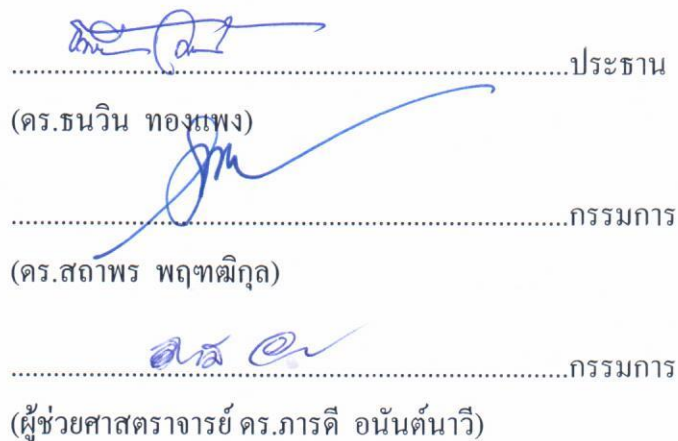 ....................................................................ประธาน
(ดร.ธนวิน ทองแพง)
....................................................................กรรมการ
(ดร.สถาพร พฤฑฒิกุล)
....................................................................กรรมการ
(ผู้ช่วยศาสตราจารย์ ดร.ภารดี อนันต์นาวี)